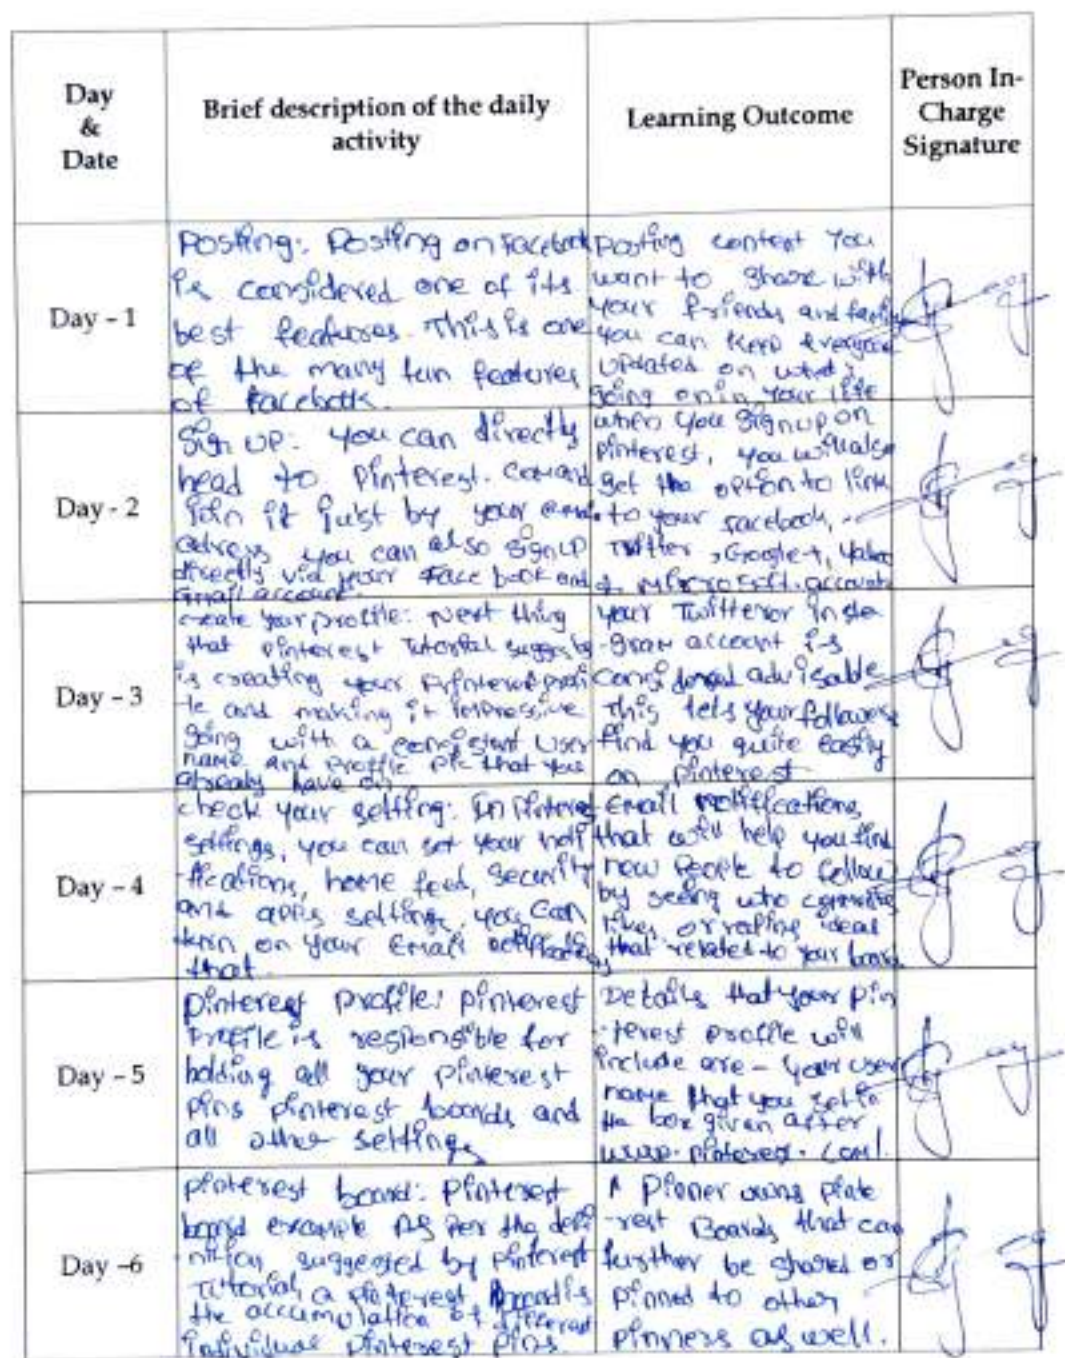 Day
&
Date
Brief description of the daily
activity
Learning Outcome
Person In-
Charge
Signature
Day - 1
Posting: Posting on Facebook
is considered one of its
best features. This is one
of the many fun features
of Facebook.
Posting content You
want to share with
your friends and family
you can keep everyone
updated on what's
going on in Your life
Day - 2
Sign up: You can directly
head to Pinterest. Com and
join it just by your email
adress you can also signup
directly via your Face book and
Gmail account.
when you Signup on
Pinterest, you will also
get the option to link
to your facebook,
Twitter, Google+, Yahoo
& Microsoft. account
Day - 3
create your profile: Next thing
that Pinterest Tutorial suggests
is creating your Pinterest profi
-le and making it impressive
going with a consistent user
name and profile pic that you
already have on
your Twitter or insta
-gram account is
considered advisable
This lets your followers
find you quite easily
on pinterest
Day - 4
check your setting: In Pinterest
settings, you can set your noti
-fications, home feed, Security
and apps settings, you can
turn on your Email notifications
that
Email Notifications
that will help you find
new People to follow
by seeing who comments
likes, or repins ideas
that related to your boards
Day - 5
Pinterest Profile: Pinterest
Profile is responsible for
holding all your Pinterest
pins pinterest boards and
all other settings
Details that your Pin
-terest profile will
include are - your user
name that you set in
the box given after
www. pinterest. com/.
Day -6
pinterest board: Pinterest
board example As Per the defi
-nition suggested by pinterest
Tutorial, a pinterest board is
the accumulation of different
individual Pinterest pins.
A Pinner owns pinte
-rest Boards that can
further be shared or
pinned to other
pinners as well.